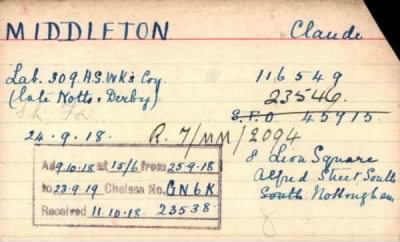 MIDDLETON Claude
Lab. 309 H.S. Wks Coy. 116549
(late Notts & Derby) 23546
S.F.O 45715
24.9.18. R. 7/MM/2094
8 Lion Square
Alfred Street South
South Nottingham
Ad 9.10.18 at 15/6 from 25-9-18
to 23-9-19 Chelsea No. GN6K
Received 11.10.18. 23538